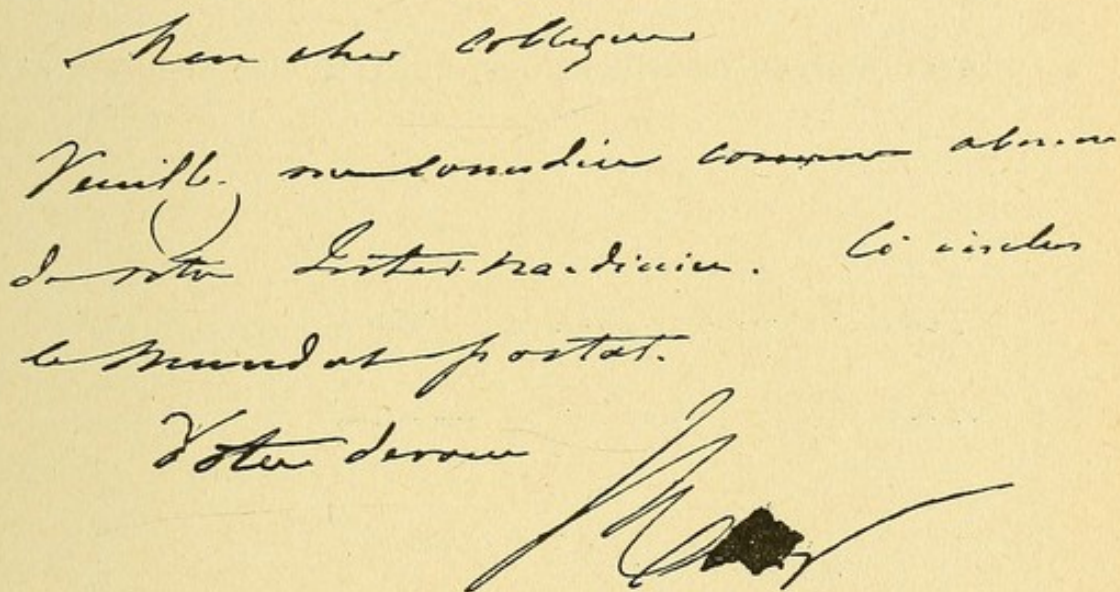 Mon cher collegue
Veuillez me considerer comme abonne
de votre Inter. Ci inclus
le mandat postal.
Votre devoue